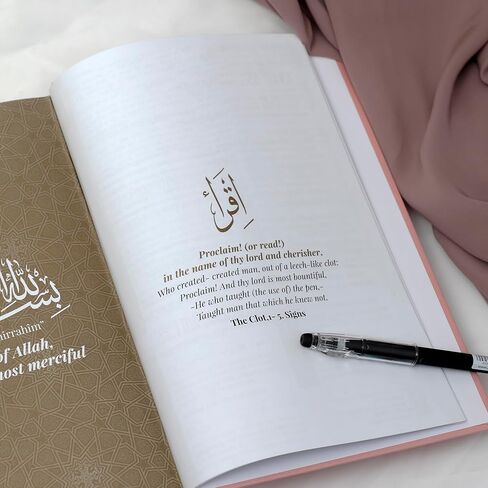 بسم الله
of Allah,
most merciful
اقرأ
Proclaim! (or read!)
in the name of thy lord and cherisher,
Who created- created man, out of a leech-like clot:
Proclaim! And thy lord is most bountiful,
-He who taught (the use of) the pen,-
Taught man that which he knew not.
The Clot,1- 5. Signs